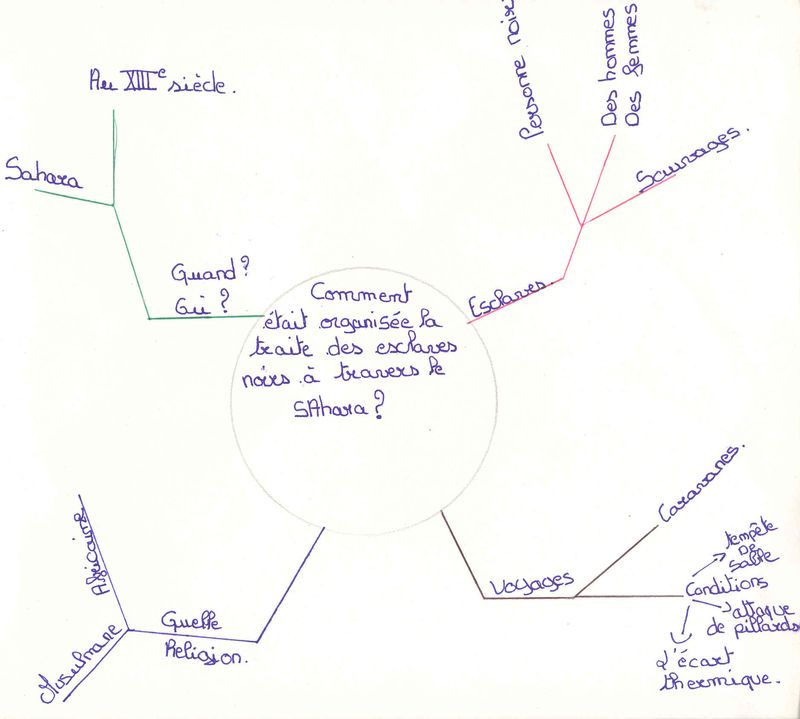 Comment
était organisée la
traite des esclaves
noirs à travers le
SAhara ?
Quand ?
Où ?
Sahara
Au XIIIe siècle.
Esclaves.
Personne noire
Des hommes
Des femmes
Sauvages.
Voyages
Caravanes.
Conditions
tempête
De
sable
l'attaque
de pillards
L'écart
thermique.
Quelle
Religion.
Africaine
Musulmane